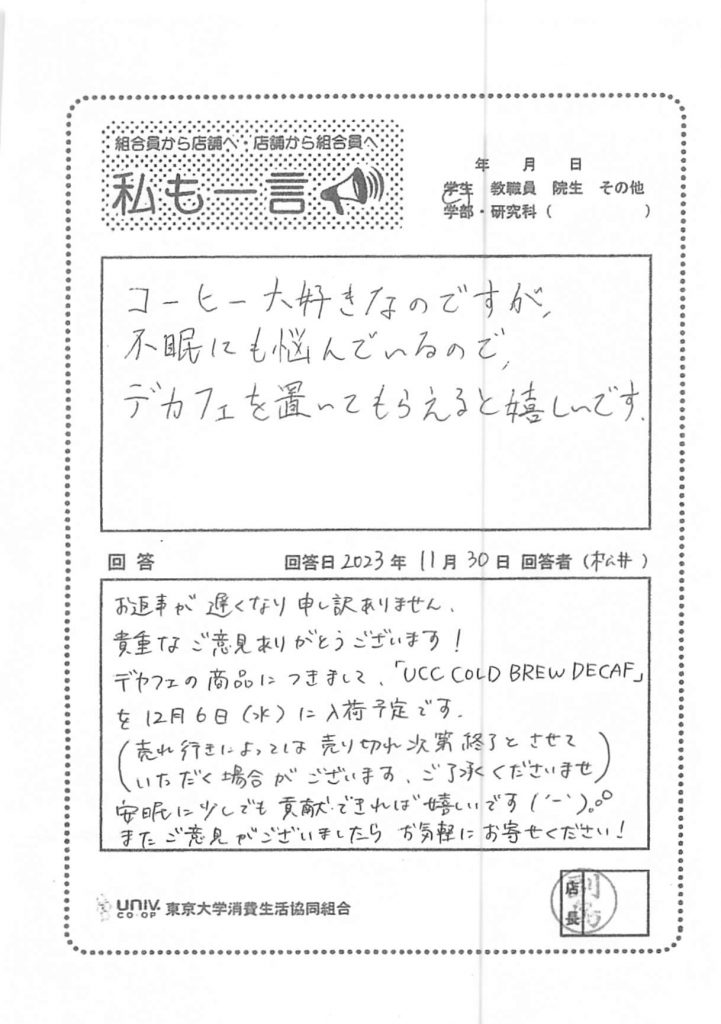 組合員から店舗へ・店舗から組合員へ
私も一言
年 月 日
学生 教職員 院生 その他
学部・研究科( )
コーヒー大好きなのですが,
不眠にも悩んでいるので,
デカフェを置いてもらえると嬉しいです.
回答 回答日 2023年 11月30日 回答者(松井)
お返事が遅くなり申し訳ありません.
貴重なご意見ありがとうございます!
デカフェの商品につきまして、「UCC COLD BREW DECAF」
を12月6日(水)に入荷予定です.
(売れ行きによっては売り切れ次第終了とさせて
いただく場合がございます、ご了承くださいませ)
安眠に少しでも貢献できれば嬉しいです(´ー`)。oO
またご意見がございましたらお気軽にお寄せください!
UNIV. CO-OP 東京大学消費生活協同組合
店長